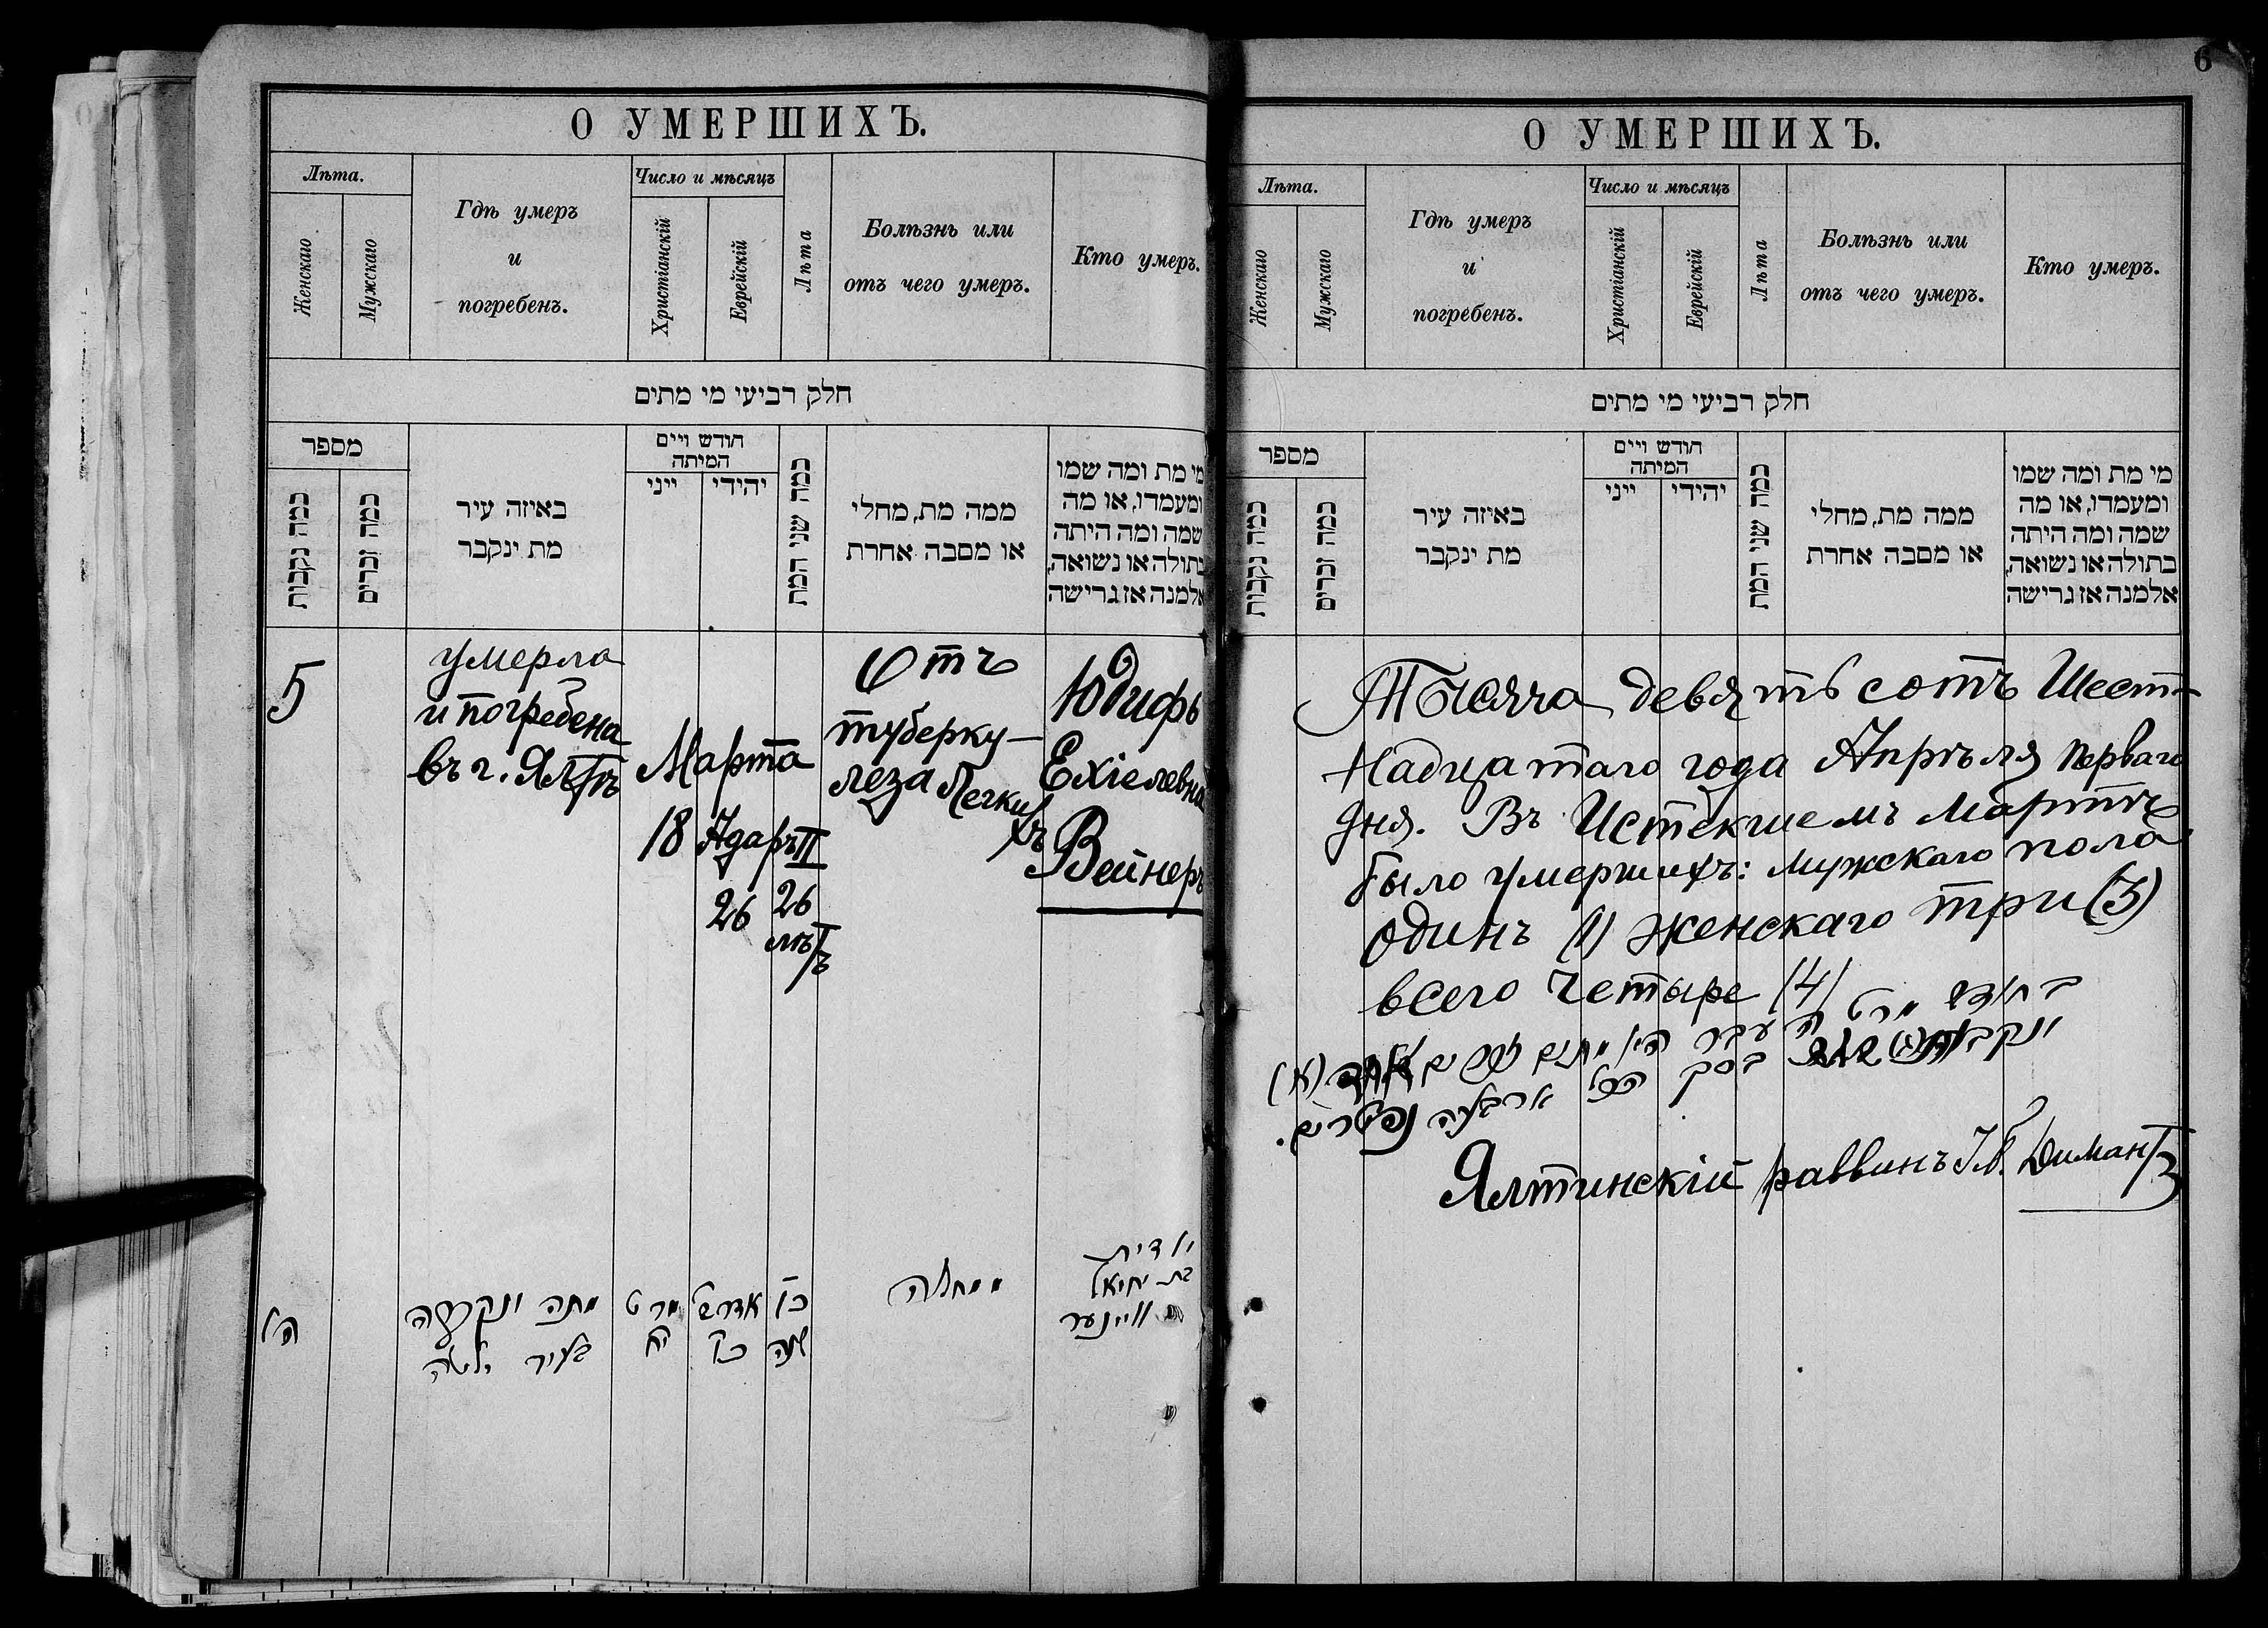 О УМЕРШИХЪ.
Лѣта.
Женскаго
Мужскаго
Гдѣ умеръ
и
погребенъ.
Число и мѣсяцъ
Христіанскій
Еврейскій
Лѣта
Болѣзнь или
отъ чего умеръ.
Кто умеръ.
חלק רביעי מי מתים
מספר
כמה נקבות
כמה זכרים
באיזה עיר
מת ינקבר
חודש ויים
המיתה
ייני
יהודי
כמה שני המת
ממה מת, מחלי
או מסבה אחרת
מי מת ומה שמו
ומעמדו, או מה
שמה ומה היתה
בתולה או נשואה,
אלמנה אז גרישה
5
умерла
и погребена
въ г. Ялтѣ
Марта
18 Адаръ II
26
26
лѣтъ
Отъ
туберку-
леза легкихъ
Юдифь
Ехіелевна
Вейнеръ
ה׳
מתה ונקברה
בעיר יאלטה
מרט
יח
אדר
כו
שנה
ממחלה
יודית
בת יחיאל
וויינער
6
О УМЕРШИХЪ.
Лѣта.
Женскаго
Мужскаго
Гдѣ умеръ
и
погребенъ.
Число и мѣсяцъ
Христіанскій
Еврейскій
Лѣта
Болѣзнь или
отъ чего умеръ.
Кто умеръ.
חלק רביעי מי מתים
מספר
כמה נקבות
כמה זכרים
באיזה עיר
מת ינקבר
חודש ויים
המיתה
ייני
יהודי
כמה שני המת
ממה מת, מחלי
או מסבה אחרת
מי מת ומה שמו
ומעמדו, או מה
שמה ומה היתה
בתולה או נשואה,
אלמנה אז גרישה
Тысяча девятьсотъ Шест-
надцатаго года Апрѣля перваго
дня. Въ Истекшемъ Мартѣ
было умершихъ: мужскаго пола
одинъ (1) женскаго три (3)
всего четыре (4)
בחודש מרט העבר היו מתים זכרים אחד (א)
ונקבות בסך הכל ארבעה נפטרים.
Ялтинскій раввинъ Я. Димантъ